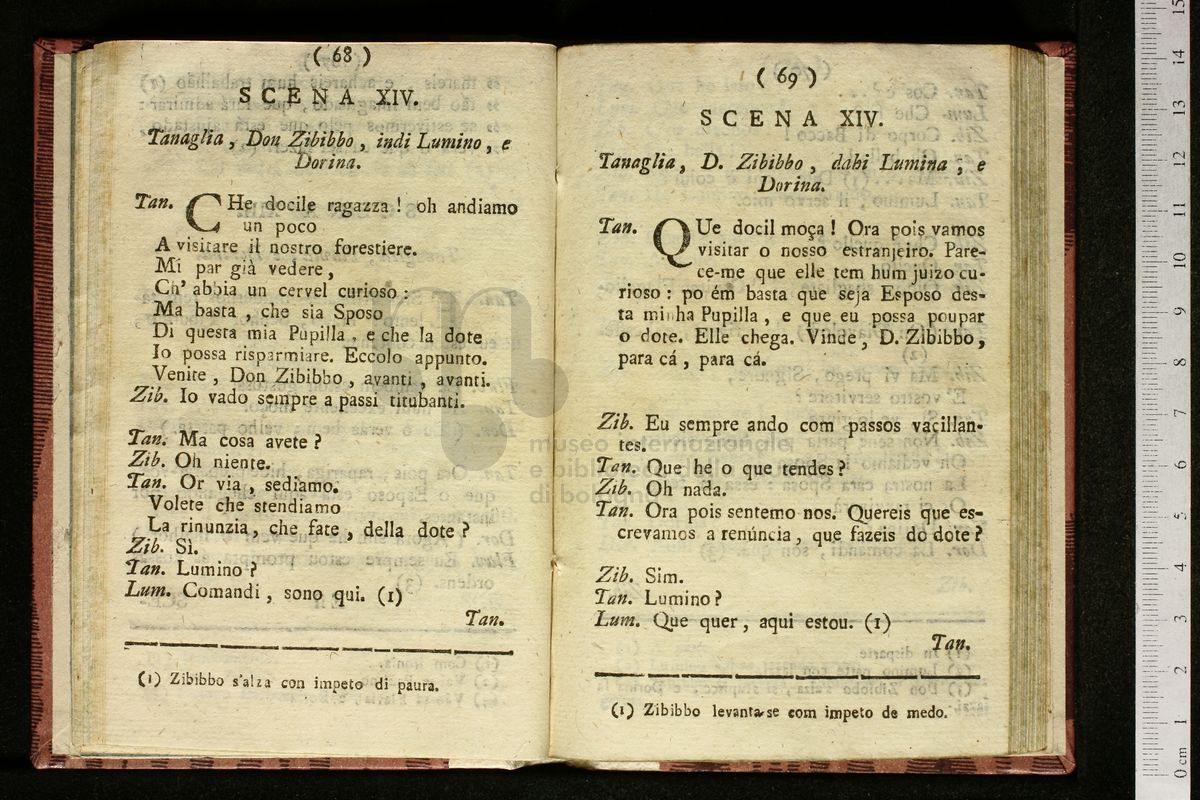 ( 68 )
SCENA XIV.
Tanaglia, Don Zibibbo, indi Lumino, e
Dorina.
Tan. CHe docile ragazza! oh andiamo
un poco
A visitare il nostro forestiere.
Mi par già vedere,
Ch' abbia un cervel curioso:
Ma basta, che sia Sposo
Di questa mia Pupilla, e che la dote
Io possa risparmiare. Eccolo appunto.
Venite, Don Zibibbo, avanti, avanti.
Zib. Io vado sempre a passi titubanti.
Tan. Ma cosa avete?
Zib. Oh niente.
Tan. Or via, sediamo.
Volete che stendiamo
La rinunzia, che fate, della dote?
Zib. Sì.
Tan. Lumino?
Lum. Comandi, sono qui. (1)
Tan.
(1) Zibibbo s'alza con impeto di paura.
( 69 )
SCENA XIV.
Tanaglia, D. Zibibbo, dahi Lumina; e
Dorina.
Tan. QUe docil moça! Ora pois vamos
visitar o nosso estranjeiro. Pare-
ce-me que elle tem hum juizo cu-
rioso: po ém basta que seja Esposo des-
ta minha Pupilla, e que eu possa poupar
o dote. Elle chega. Vinde, D. Zibibbo,
para cá, para cá.
Zib. Eu sempre ando com passos vacillan-
tes.
Tan. Que he o que tendes?
Zib. Oh nada.
Tan. Ora pois sentemo nos. Quereis que es-
crevamos a renúncia, que fazeis do dote?
Zib. Sim.
Tan. Lumino?
Lum. Que quer, aqui estou. (1)
Tan.
(1) Zibibbo levanta-se com impeto de medo.
museo internazionale
e biblioteca
di bologna
15
14
13
12
11
10
9
8
7
6
5
4
3
2
1
0 cm